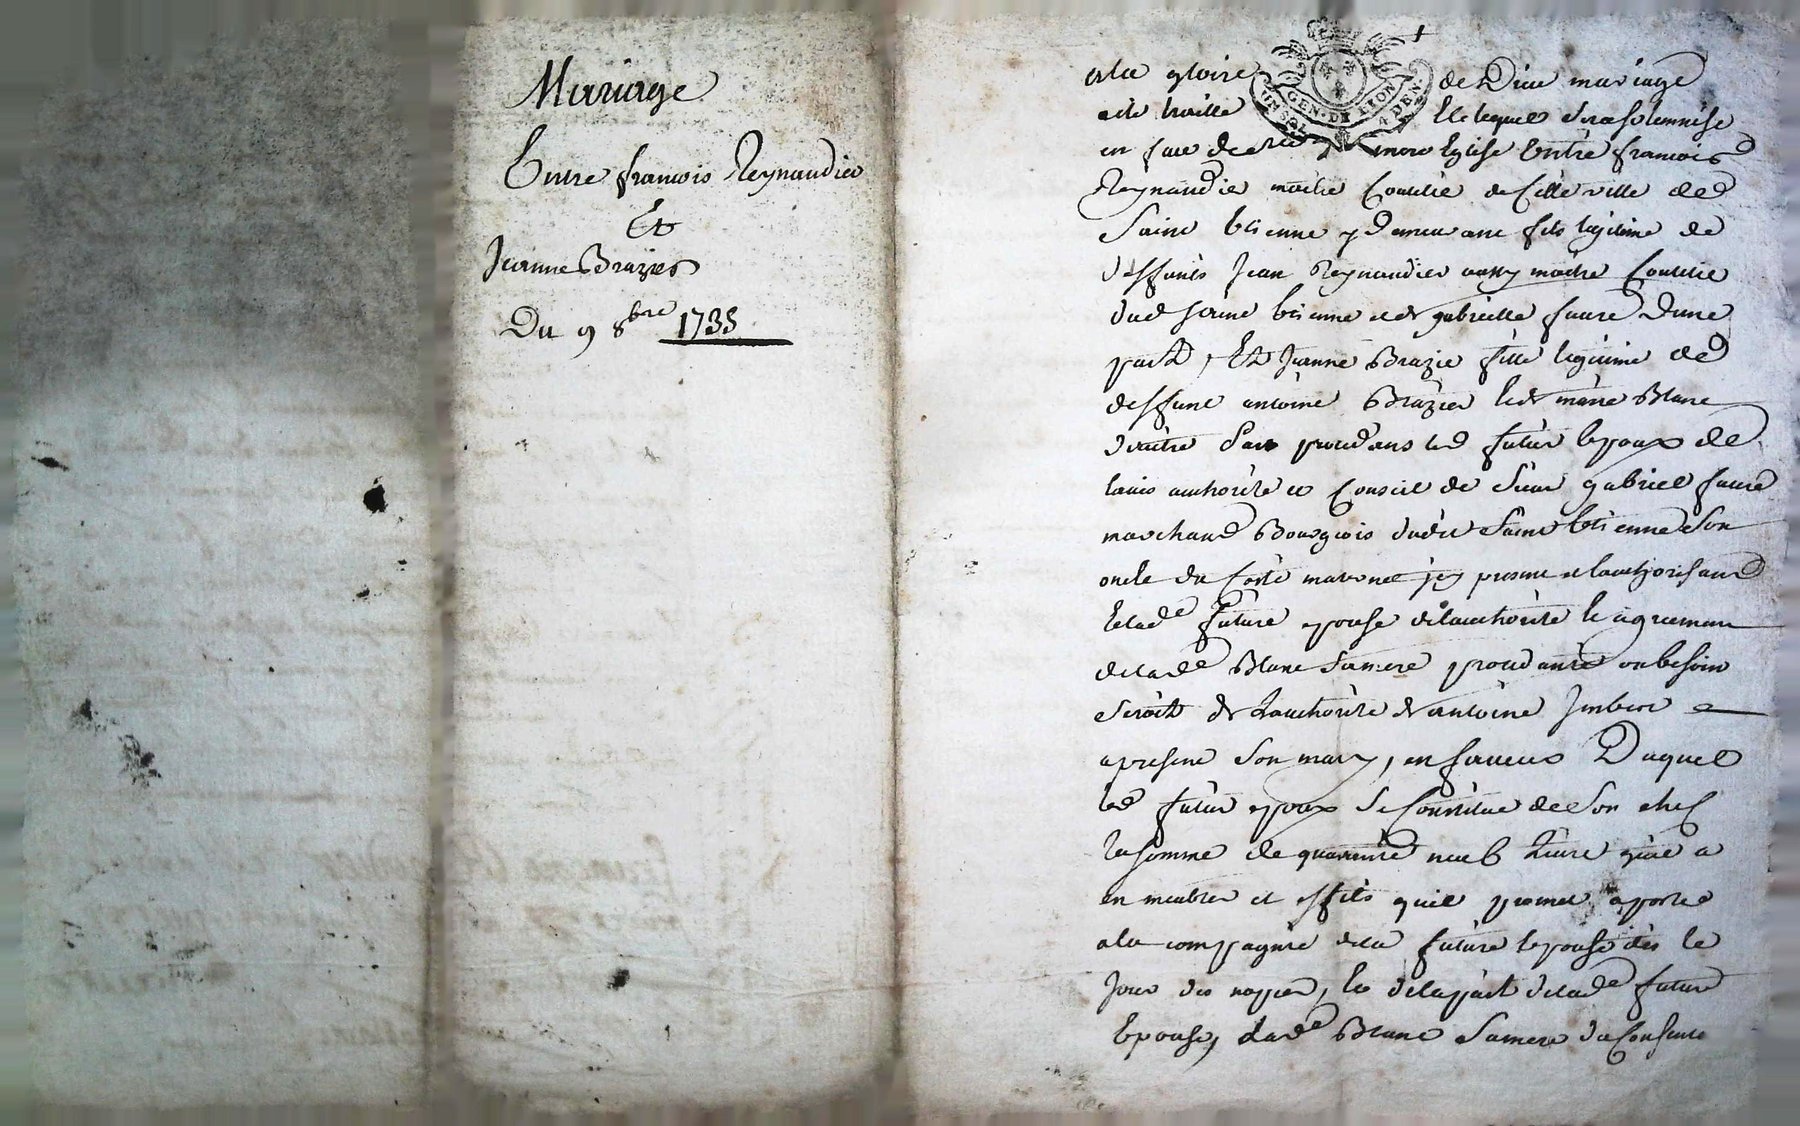 Mariage
Entre francois Reynaudier
Et
Jeanne Brazier
Du 9 8bre 1735
a la gloire de Dieu mariage
a ete traitte Et lequel sera solemnise
en face de mere Eglise Entre francois
Reynaudie maitre Coutelie de Cette ville de
Saint Etienne y demeurant fils legitime de
deffunts Jean Reynaudier aussy maitre Coutelie
dud saint Etienne et de gabrielle faure dune
part, Et Jeanne Brazie fille legitime de
deffunt antoine Brazier Et de marie Blanc
dautre part procedans led futur Epoux de
lavis authorite et Conseil de Sieur gabriel faure
marchand Bourgeois dudit Saint Etienne Son
oncle du Coste maternel icy present et lauthorisant
Et lade future epouse de lauthorite Et agrement
de lade Blanc Sa mere procedante ou besoin
Seroit de Lauthorite de antoine Imbert
a present Son mary, en faveur Duquel
led futur epoux Se Constitue de Son chef
la somme de quarante neuf Livre quil a
en meubles et effets quil promet aporte
a la compagnie de la future Epouse des le
Jour des nopces, Et de la part de lade future
Epouse, Lade Blanc Sa mere du Consente